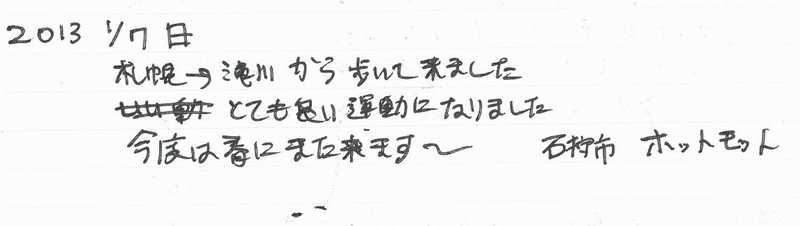 2013 1/7日
札幌→滝川から歩いて来ました
とても良い運動になりました
今度は春にまた来ます〜 石狩市 ホットモット